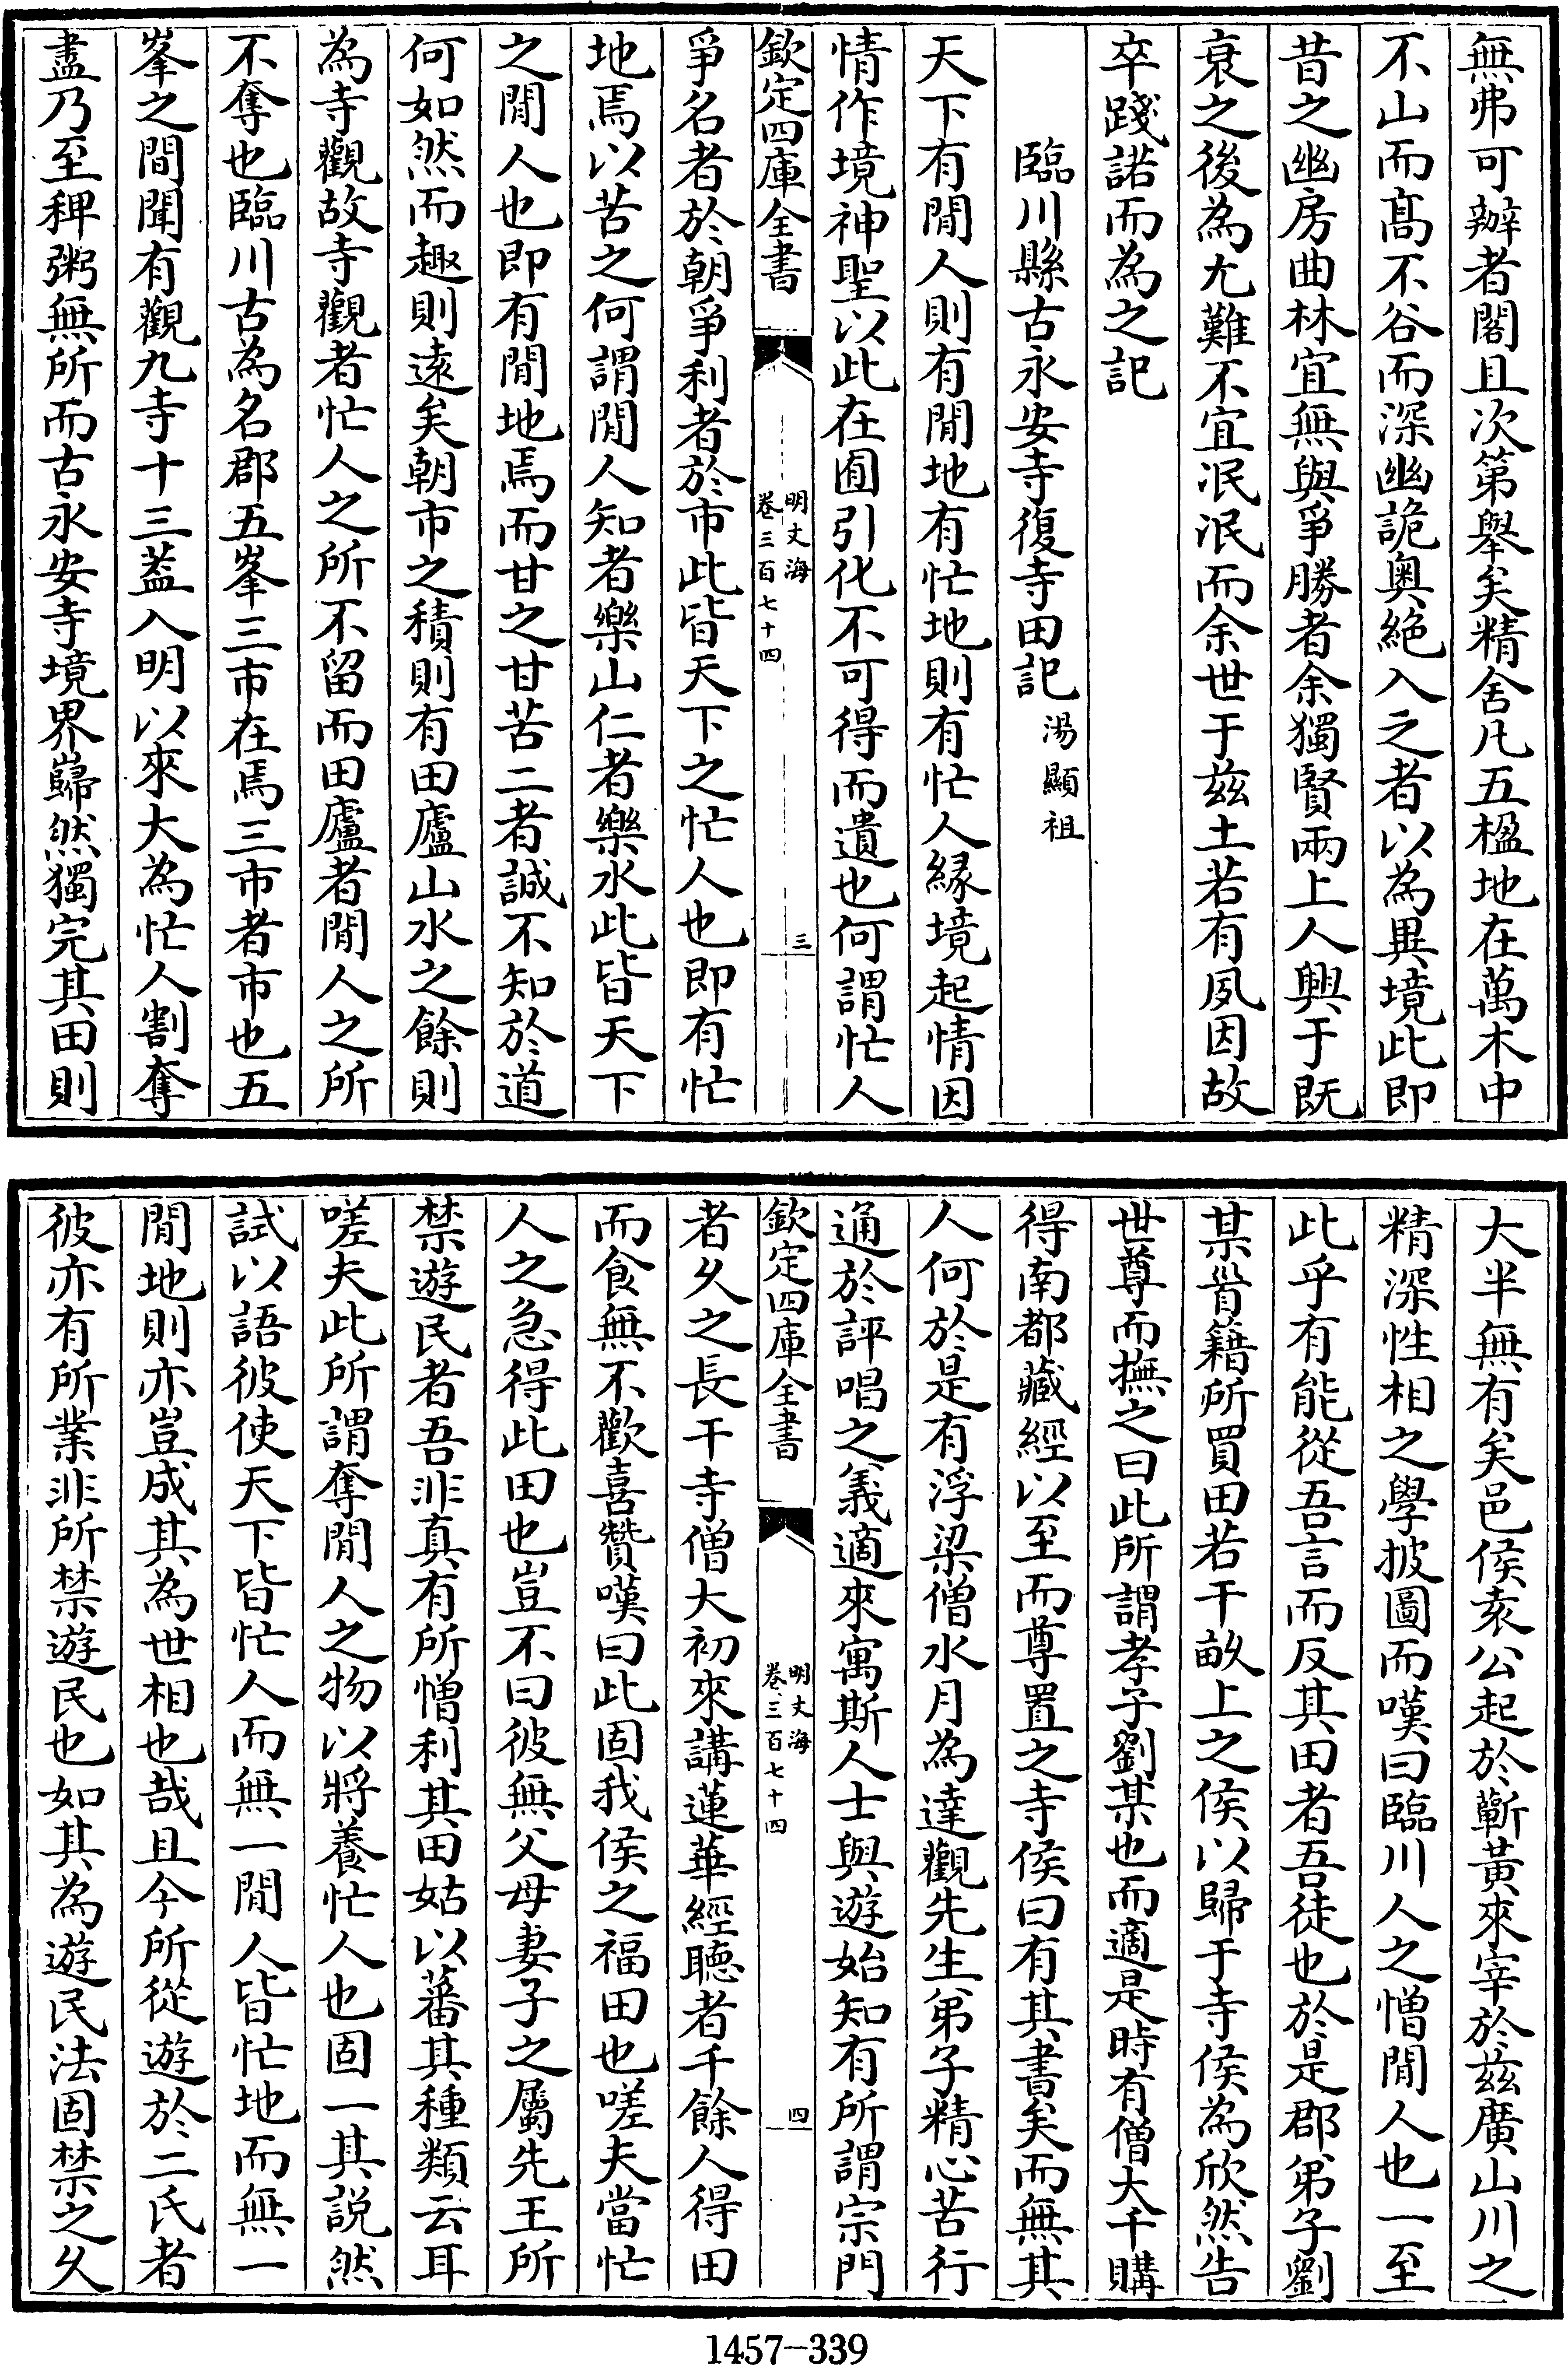 無弗可辦者閣且次第舉矣精舍凡五楹地在萬木中
不山而髙不谷而深幽詭奥絶入之者以為異境此即
昔之幽房曲林宜無與爭勝者余獨賢兩上人興于旣
衰之後為尢難不宜泯泯而余世于兹土若有夙因故
卒踐諾而為之記
臨川縣古永安寺復寺田記湯顯祖
天下有閒人則有閒地有忙地則有忙人緣境起情因
情作境神聖以此在囿引化不可得而遺也何謂忙人
欽定四庫全書
明文海
卷三百七十四
三
爭名者於朝爭利者於市此皆天下之忙人也即有忙
地焉以苦之何謂閒人知者樂山仁者樂水此皆天下
之閒人也即有閒地焉而甘之甘苦二者誠不知於道
何如然而趣則逺矣朝市之積則有田廬山水之餘則
為寺觀故寺觀者忙人之所不留而田廬者閒人之所
不奪也臨川古為名郡五峯三市在焉三市者市也五
峯之間聞有觀九寺十三葢入明以來大為忙人割奪
盡乃至稗粥無所而古永安寺境界巋然獨完其田則
大半無有矣邑侯袁公起於蘄黃來宰於兹廣山川之
精深性相之學披圖而嘆曰臨川人之憎閒人也一至
此乎有能從吾言而反其田者吾徒也於是郡弟子劉
某㫺籍所買田若干畝上之侯以歸于寺侯為欣然告
世尊而撫之曰此所謂孝子劉某也而適是時有僧大千購
得南都藏經以至而尊置之寺侯曰有其書矣而無其
人何於是有浮梁僧水月為達觀先生弟子精心苦行
通於評唱之義適來寓斯人士與遊始知有所謂宗門
欽定四庫全書
明文海
卷三百七十四
四
者乆之長干寺僧大初來講蓮華經聽者千餘人得田
而食無不歡喜贊嘆曰此固我侯之福田也嗟夫當忙
人之急得此田也豈不曰彼無父母妻子之屬先王所
禁遊民者吾非真有所憎利其田姑以蕃其種類云耳
嗟夫此所謂奪閒人之物以將養忙人也固一其説然
試以語彼使天下皆忙人而無一閒人皆忙地而無一
閒地則亦豈成其為世相也哉且今所從遊於二氏者
彼亦有所業非所禁遊民也如其為遊民法固禁之乆
1457-339